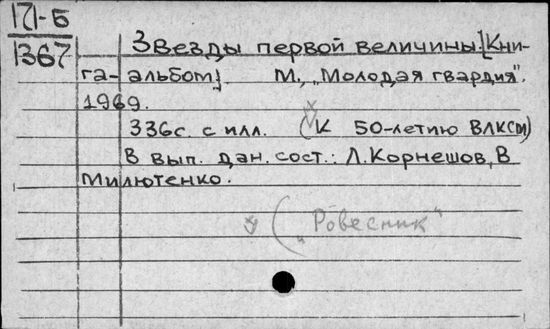 171-Б
1367
Звезды первой величины. [Кни-
га-альбом]. М., „Молодая гвардия".
1969.
336с. с илл. (К 50-летию ВЛКСМ)
В вып. дан. сост.: Л.Корнешов, В
Милютенко.
(„Ровесник"